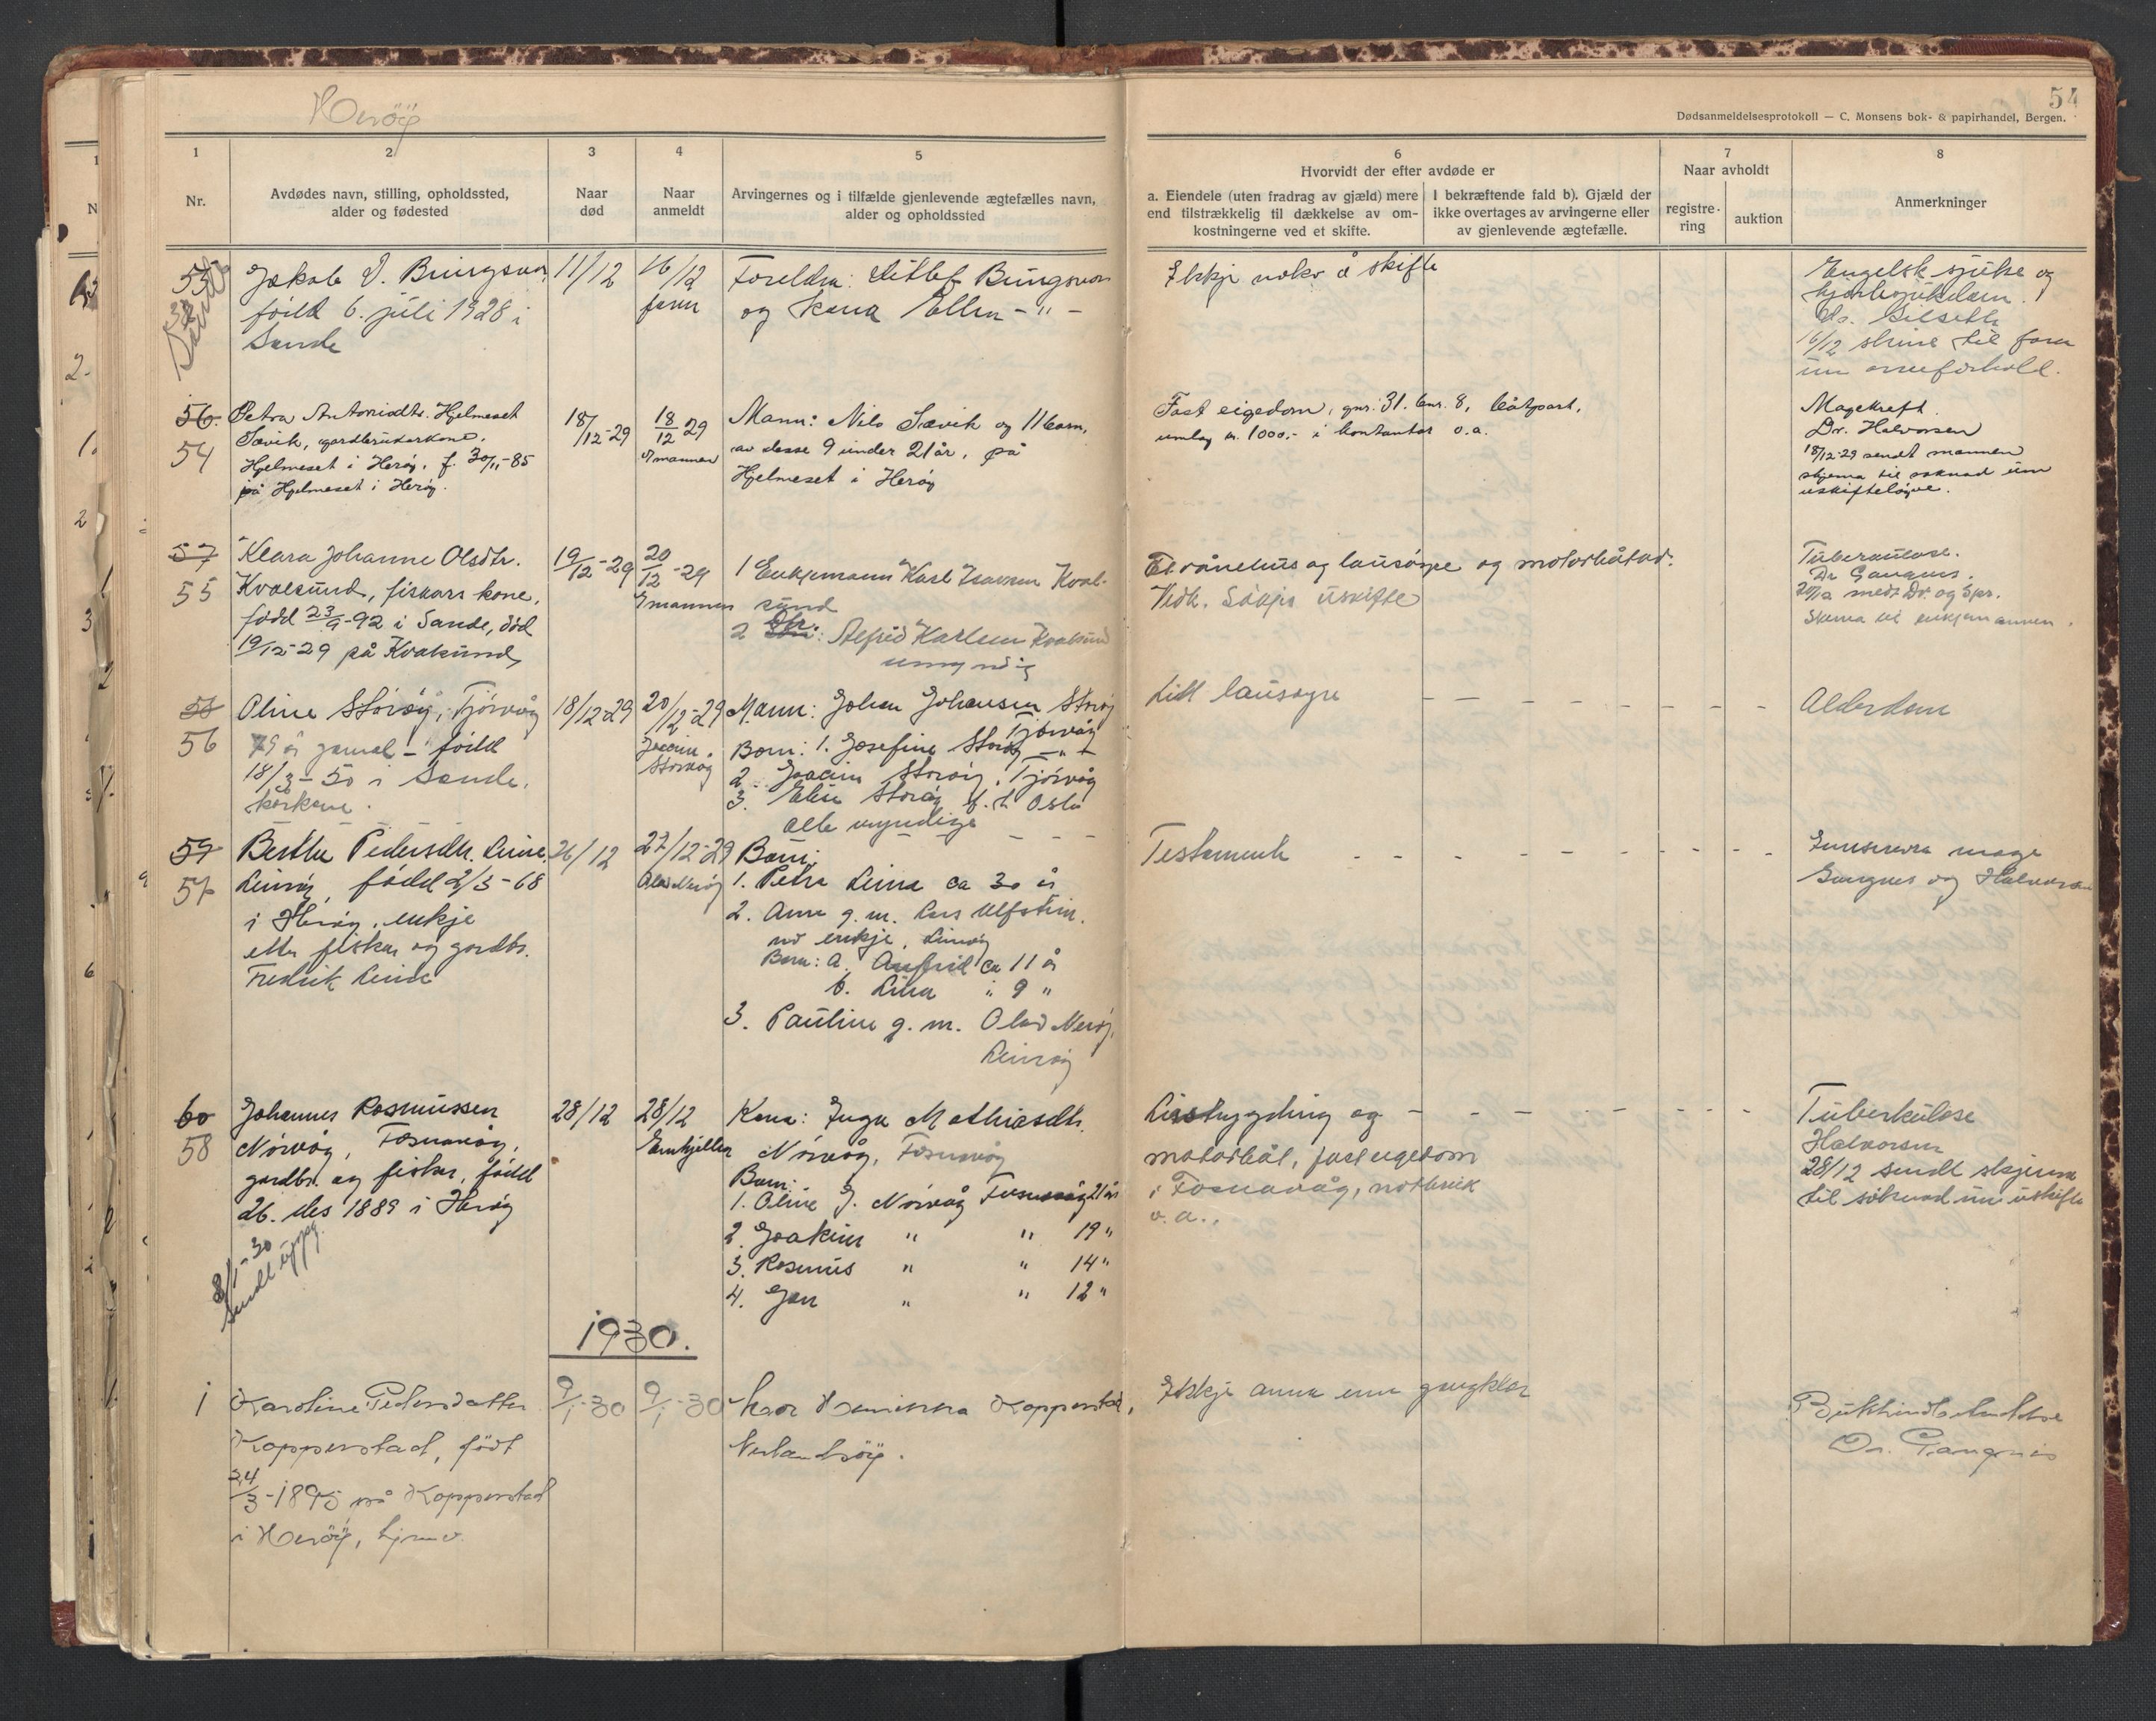 Herøy
54
Dødsanmeldelsesprotokoll — C. Monsens bok- & papirhandel, Bergen.
1
Nr.
2
Avdødes navn, stilling, opholdssted,
alder og fødested
3
Naar
død
4
Naar
anmeldt
5
Arvingernes og i tilfælde gjenlevende ægtefælles navn,
alder og opholdssted
6
Hvorvidt der efter avdøde er
a. Eiendele (uten fradrag av gjæld) mere
end tilstrækkelig til dækkelse av om-
kostningerne ved et skifte.
I bekræftende fald b). Gjæld der
ikke overtages av arvingerne eller
av gjenlevende ægtefælle.
7
Naar avholdt
registre-
ring
auktion
8
Anmerkninger
55
Jakob D. Bringsvor
født 6. juli 1928 i
Sande
11/12
16/12
faren
Foreldra: Ditlef Bringsvor
og kona Ellen - " -
Ikkje noko å skifte
Engelsk sjuke og
Dr. Selseth
16/12 skrive til faren
um arveforhold.
56.
54
Petra Antonidtr. Hjelmeset
Sævik, gardbrukarkone,
Hjelmeset i Herøy, f. 30/11-85
på Hjelmeset i Herøy.
18/12-29
18/12 29
v/mannen
Mann: Nils Sævik og 11 born,
av desse 9 under 21 år, på
Hjelmeset i Herøy
Fast eigedom, gnr. 31. bnr. 8, båtpart,
umlag kr. 1000,- i kontantar o.a.
Magekreft.
Dr. Halvorsen
18/12-29 sendt mannen
skjema til soknad um
uskifteløyve.
57
55
Klara Johanne Olsdtr.
Kvalsund, fiskars kone,
født 23/9-92 i Sande, død
19/12-29 på Kvalsund,
19/12-29
20/12-29
v/mannen
1 Enkjemann Karl Isaksen Kval-
sund
2 Dtr.: Alfrid Karlsen Kvalsund
umyndig
Et vånehus og lausøyre og motorbåtad.
Vidk. Søkjer uskifte
Tuberkulose.
Dr Gangnes.
20/12 medt Dr. og Spr.
Skema til enkjemannen.
58
56
Oline Storøy, Tjørvåg
79 år gamal - født
18/3-50 i Sande.
kårkone.
18/12-29
20/12-29
Joacim
Storøy
Mann: Johan Johansen Storøy
Tjørvåg
Born: 1. Josefine Storøy - " -
2. Joacim Storøy, Tjørvåg
3. Elise Storøy f. t. Oslo
Alle myndige
Litt lausøyre
Alderdom
59
57
Berthe Pedersdtr. Leine,
Leinøy, født 2/3-68
i Herøy, enkje
etter fiskar og gardbr.
Fredrik Leine
26/12
27/12-29
Olav Nerøy
Born:
1. Petra Leine ca 30 år
2. Anna g. m. Lars Ulfstein.
no enkje, Leinøy
Born: a. Anfrid ca 11 år
b. Lina " 9 "
3. Pauline g. m. Olav Nerøy,
Leinøy
Testament
Gangnes og Halvorsen
60
58
Johannes Rasmussen
Nørvåg, Fosnavåg,
gardbr. og fiskar, født
26. des 1889 i Herøy
8/1-30
sendt uppg.
28/12
28/12
Enkja: Inga Mathiasdtr.
Nørvåg, Fosnavåg
Born:
1. Oline J. Nørvåg Fosnavåg 21 år
2. Joakim " " 19 "
3. Rasmus " " 14 "
4. Jan " " 12 "
motorbåt, fast eigedom
i Fosnavåg, notbruk
o.a..
Tuberkulose
Halvorsen
28/12 sendt skjema
til søknad um uskifte
1930.
1
Karoline Pedersdatter
Kopperstad, født
24/3-1895 på Kopperstad
i Herøy, hjemv.
9/1-30
9/1-30
Mor Henrikka Kopperstad,
Nerlandsøy.
Ikkje anna enn gangklær
Bukhindebetendelse
Dr. Gangnes